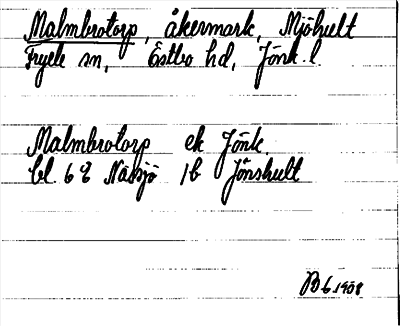 Malmbrotorp, åkermark, Mjöhult
Fryele sn, Östbo hd, Jönk. l.
Malmbrotorp ek Jönk.
bl 68 Nässjö 1b Jönshult
B 6 1908